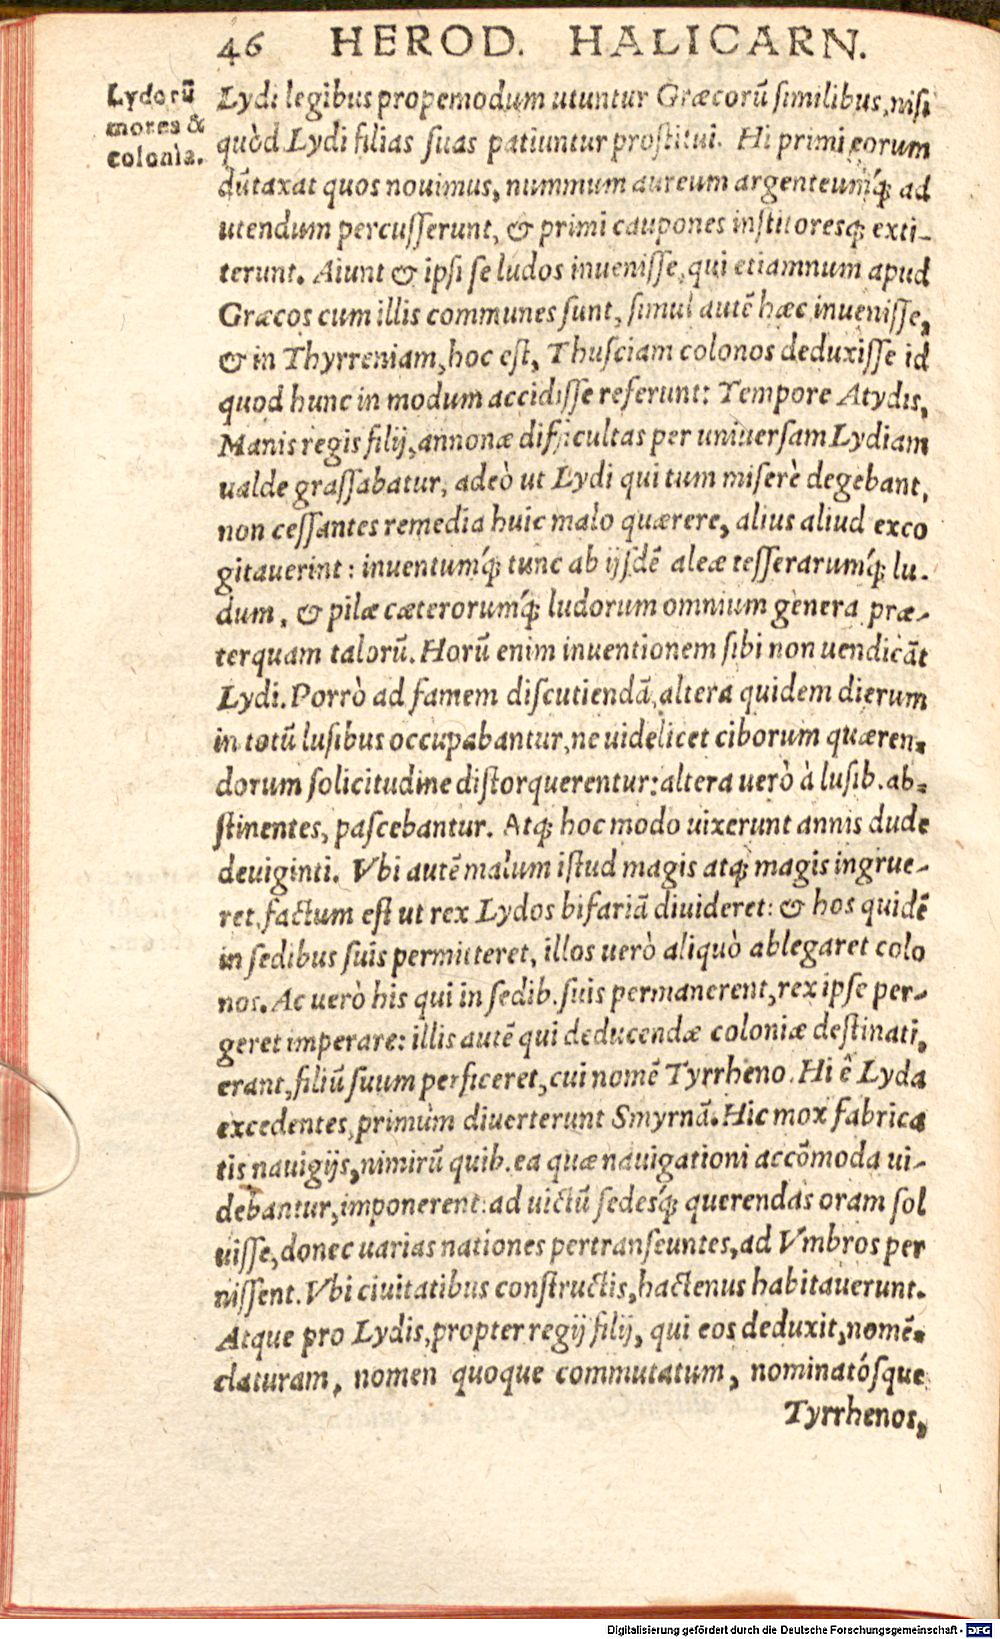 46 HEROD. HALICARN.
Lydorũ
mores &
colonia.
Lydi legibus propemodum utuntur Græcorũ similibus, nisi
quòd Lydi filias suas patiuntur prostitui. Hi primi eorum
dũtaxat quos nouimus, nummum aureum argenteumq́ꝫ ad
utendum percusserunt, & primi caupones institoresqꝫ exti-
terunt. Aiunt & ipsi se ludos inuenisse, qui etiamnum apud
Græcos cum illis communes sunt, simul autẽ hæc inuenisse,
& in Thyrreniam, hoc est, Thusciam colonos deduxisse id
quod hunc in modum accidisse referunt: Tempore Atydis,
Manis regis filij, annonæ difficultas per uniuersam Lydiam
ualde grassabatur, adeò ut Lydi qui tum miserè degebant,
non cessantes remedia huic malo quærere, alius aliud exco
gitauerint: inuentumq́ꝫ tunc ab ijsdẽ aleæ tesserarumq́ꝫ lu-
dum, & pilæ cæterorumq́ꝫ ludorum omnium genera præ-
terquam talorũ. Horũ enim inuentionem sibi non uendicãt
Lydi. Porrò ad famem discutiendã, altera quidem dierum
in totũ lusibus occupabantur, ne uidelicet ciborum quæren-
dorum solicitudine distorquerentur: altera uerò à lusib. ab-
stinentes, pascebantur. Atqꝫ hoc modo uixerunt annis dude
deuiginti. Vbi autẽ malum istud magis atqꝫ magis ingrue-
ret, factum est ut rex Lydos bifariã diuideret: & hos quidẽ
in sedibus suis permitteret, illos uerò aliquò ablegaret colo
nos. Ac uerò his qui in sedib. suis permanerent, rex ipse per-
geret imperare: illis autẽ qui deducendæ coloniæ destinati,
erant, filiũ suum perficeret, cui nomẽ Tyrrheno. Hi ẽ Lyda
excedentes, primùm diuerterunt Smyrnã. Hic mox fabrica
tis nauigijs, nimirũ quib. ea quæ nauigationi accõmoda ui-
debantur, imponerent: ad uictũ sedesq́ꝫ querendas oram sol
uisse, donec uarias nationes pertranseuntes, ad Vmbros per
nissent. Vbi ciuitatibus constructis, hactenus habitauerunt.
Atque pro Lydis, propter regij filij, qui eos deduxit, nomẽ-
claturam, nomen quoque commutatum, nominatósque
Tyrrhenos,
Digitalisierung gefördert durch die Deutsche Forschungsgemeinschaft - DFG